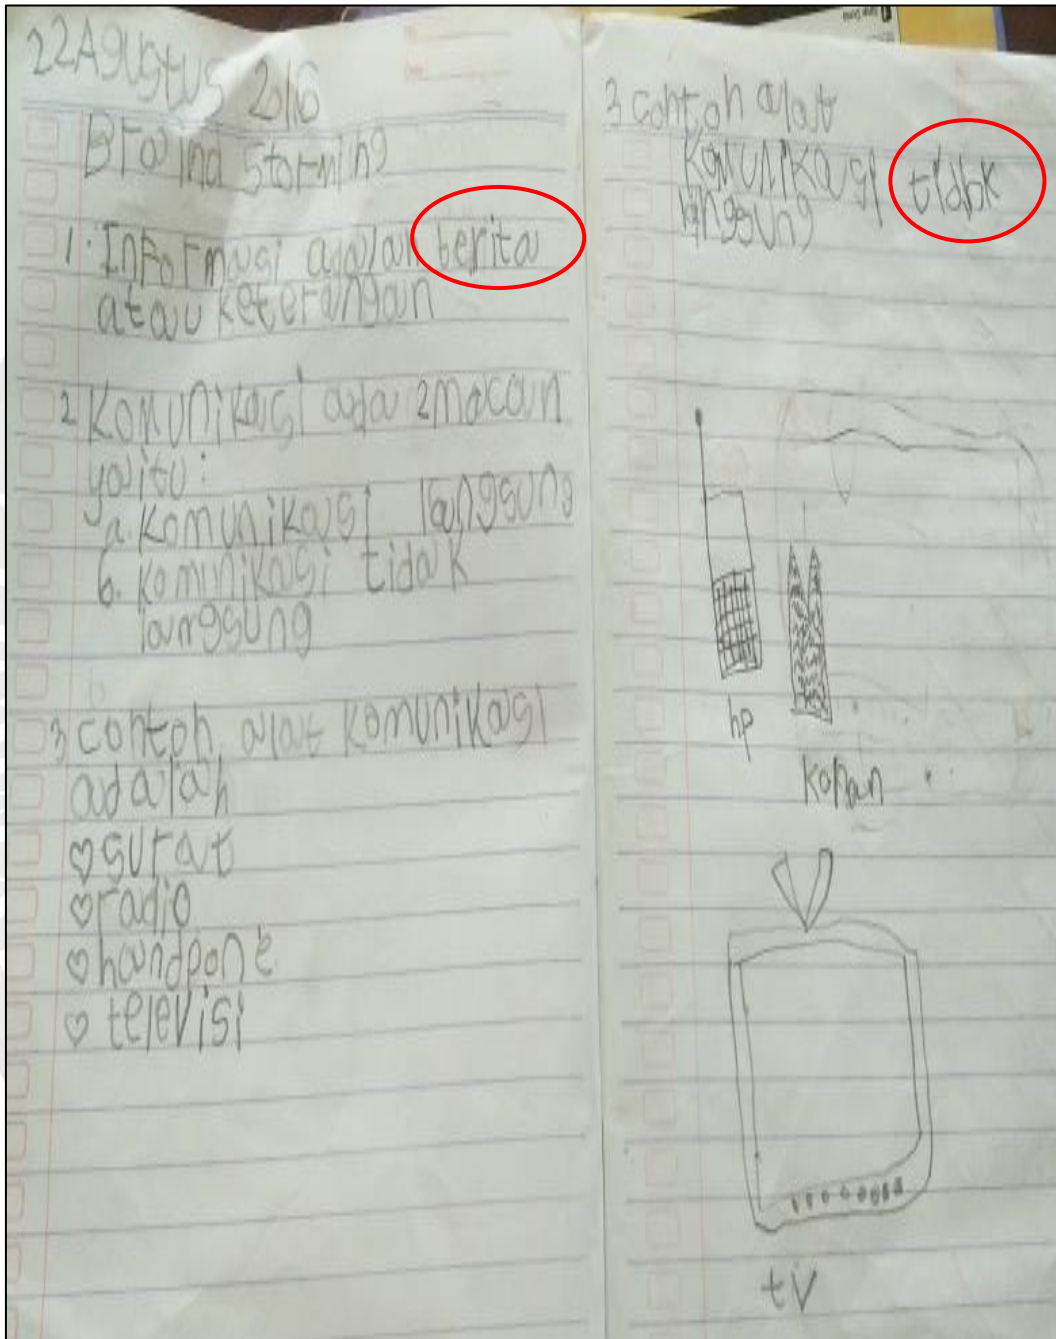 22 Agustus 2016
Braind Storming
1. Informasi adalah berita
atau keterangan
2 Komunikasi ada 2 macam
yaitu:
a. Komunikasi langsung
b. Komunikasi tidak
langsung
3 contoh alat komunikasi
adalah
♡ surat
♡ radio
♡ handpone
♡ televisi
3 contoh alat
Komunikasi tidak
langsung
hp
koran
tv